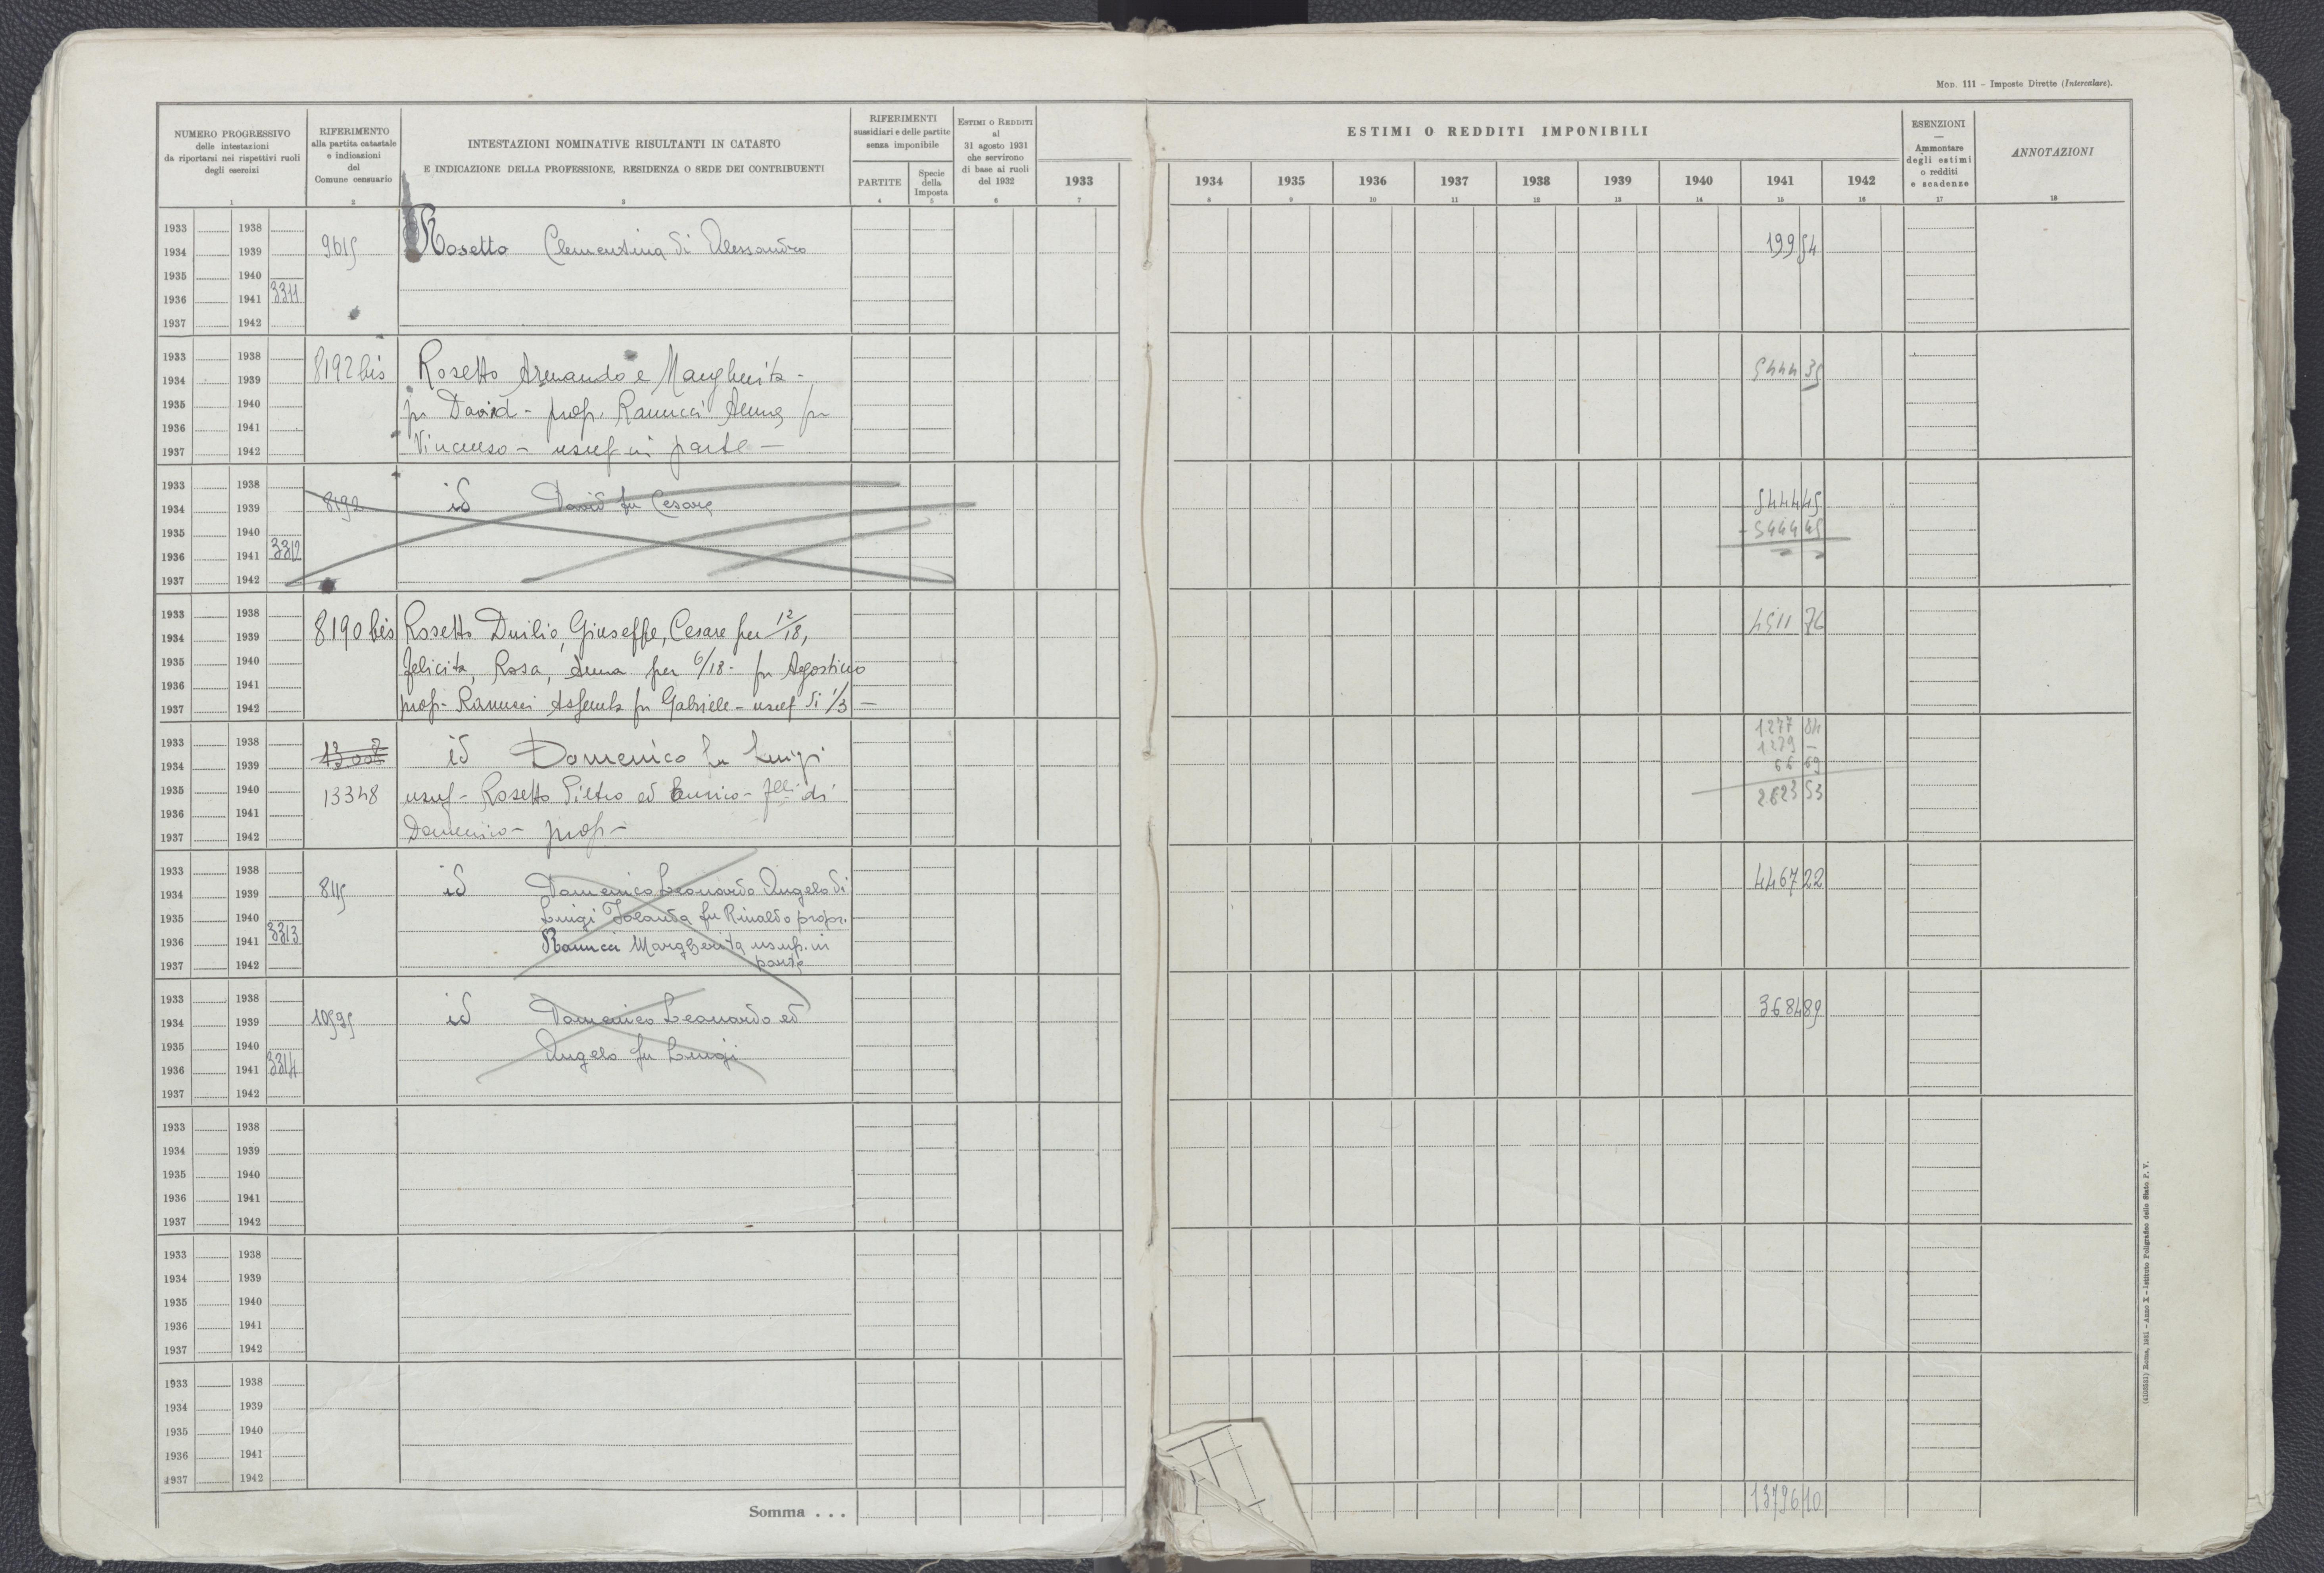 Mod. 111 – Imposte Dirette (Intercalare).
NUMERO PROGRESSIVO
delle intestazioni
da riportarsi nei rispettivi ruoli
degli esercizi
RIFERIMENTO
alla partita catastale
e indicazioni
del
Comune censuario
INTESTAZIONI NOMINATIVE RISULTANTI IN CATASTO
E INDICAZIONE DELLA PROFESSIONE, RESIDENZA O SEDE DEI CONTRIBUENTI
RIFERIMENTI
sussidiari e delle partite
senza imponibile
PARTITE
Specie
della
Imposta
Estimi o Redditi
al
31 agosto 1931
che servirono
di base ai ruoli
del 1932
ESTIMI O REDDITI IMPONIBILI
1933 1934 1935 1936 1937 1938 1939 1940 1941 1942
ESENZIONI
—
Ammontare
degli estimi
o redditi
e scadenze
ANNOTAZIONI
1 2 3 4 5 6 7 8 9 10 11 12 13 14 15 16 17 18
1933 1938
1934 1939 9615 Rosetto Clementina di Alessandro 199 54
1935 1940
1936 1941 3311
1937 1942
1933 1938
1934 1939 8192 bis Rosetto Armando e Margherita - 5444 35
1935 1940 fu David - prop. Ranucci Anna fu
1936 1941
1937 1942 Vincenzo - usuf in parte -
1933 1938
1934 1939 8192 id David fu Cesare 5444 45
1935 1940 - 5444 45
1936 1941 3312
1937 1942
1933 1938
1934 1939 8190 bis Rosetto Duilio, Giuseppe, Cesare per 12/18, 4511 76
1935 1940 Felicita, Rosa, Anna per 6/18 - fu Agostino
1936 1941
1937 1942 prop - Ranucci Assunta fu Gabriele - usuf di 1/3 -
1277 84
1933 1938 1279 -
1934 1939 13008 id Domenico fu Luigi 66 69
1935 1940 13348 usuf - Rosetto Pietro ed Enrico - flli di 2623 53
1936 1941
1937 1942 Domenico - prop -
1933 1938
1934 1939 8115 id Domenico Leonardo Angelo di 4467 22
1935 1940 Luigi Jolanda fu Rinaldo propr.
1936 1941 3313 Ranucci Margherita usuf. in
1937 1942 parte
1933 1938
1934 1939 10595 id Domenico Leonardo ed 3684 89
1935 1940 Angelo fu Luigi
1936 1941 3314
1937 1942
1933 1938
1934 1939
1935 1940
1936 1941
1937 1942
1933 1938
1934 1939
1935 1940
1936 1941
1937 1942
1933 1938
1934 1939
1935 1940
1936 1941
1937 1942
Somma . . . 13796 10
(4102531) Roma, 1931 - Anno X - Istituto Poligrafico dello Stato P. V.